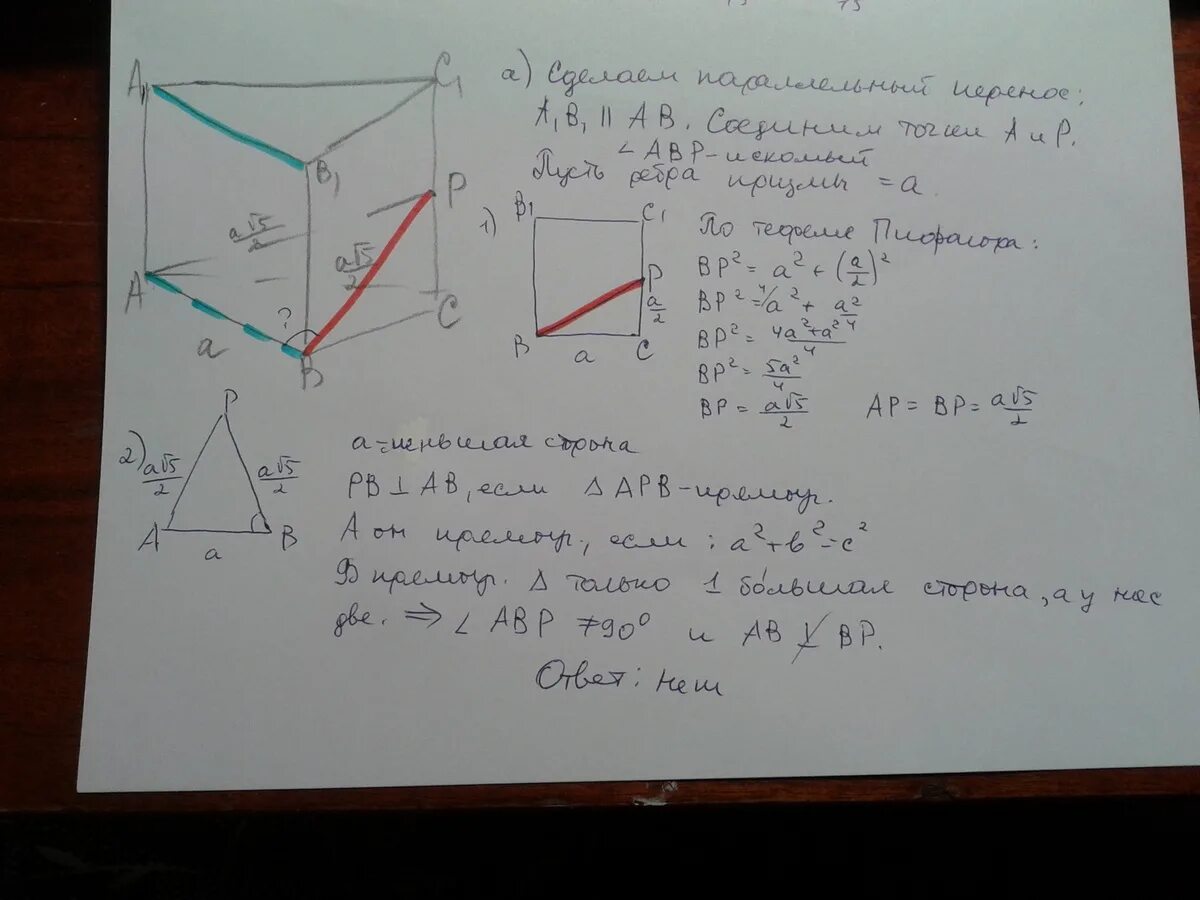 а) Сделаем параллельный перенос:
A₁B₁ || AB. Соединим точки A и P.
∠ABP - искомый
Пусть ребра призмы = a.
A₁
C₁
B₁
P
a√5/2
a√5/2
A
C
?
a
B
1)
B1
C₁
P
a/2
B
a
C
По теореме Пифагора:
BP² = a² + (a/2)²
BP² = ⁴/a² + a²/4
BP² = 4a²+a²/4
BP² = 5a²/4
BP = a√5/2 AP = BP = a√5/2
2)
P
a√5/2
a√5/2
A
a
B
a = меньшая сторона
PB ⊥ AB, если △ APB - прямоуг.
А он прямоуг., если: a²+b²=c²
В прямоуг. △ только 1 бо́льшая сторона, а у нас
две. ⇒ ∠ ABP ≠ 90° и AB ⊥̸ BP.
Ответ: нет